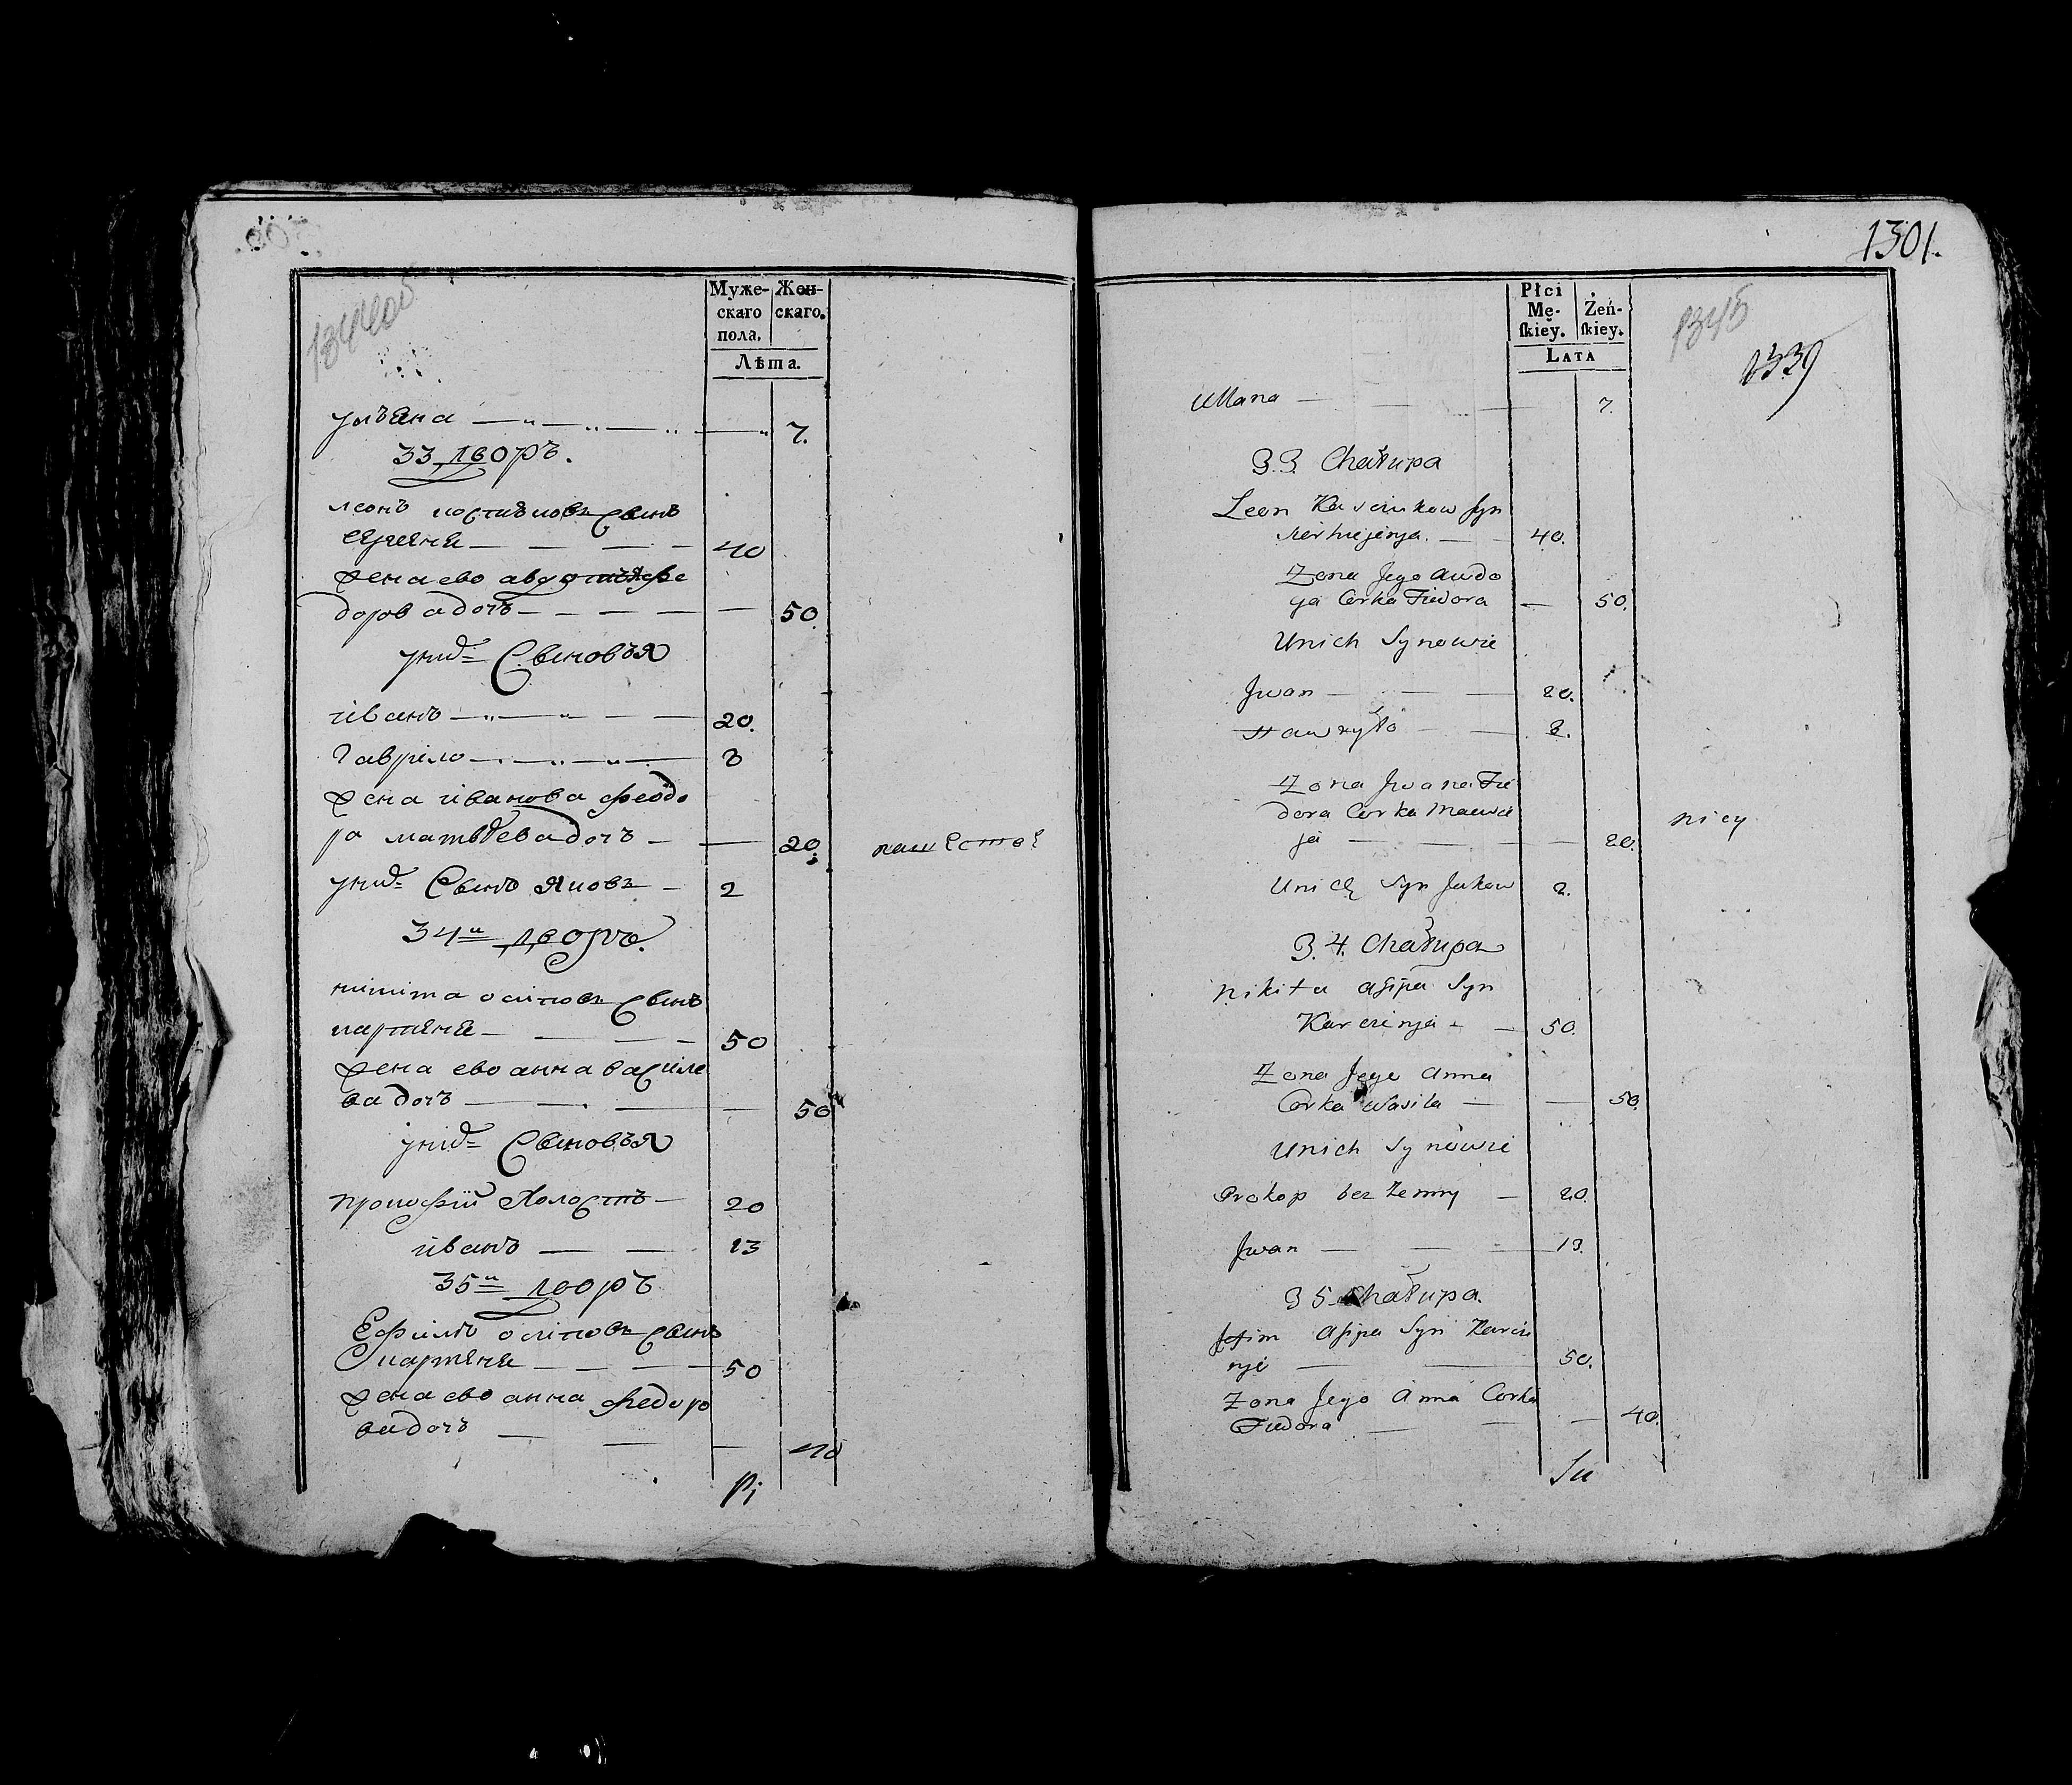 Муже-
скаго
пола.
Жен-
скаго.
Лѣта.
ульяна 7.
33 дворъ.
леонъ костюковъ Сынъ
40
жена ево авдотья фе
дорова дочь 50.
унихъ Сыновья
іванъ 20.
Гаврило 8
жена іванова феодо
ра матвѣева дочь 20.
унихъ Сынъ яковъ 2
34й дворъ.
никита осіповъ Сынъ
картеня 50
жена ево анна василе
ва дочь 50
унихъ Сыновья
прокофій Холостъ 20
іванъ 13
35й дворъ
Ефимъ осіповъ Сынъ
картеня 50
жена ево анна федоро
ва дочь 40
1301.
1339
Płci
Mę-
ſkiey.
Żeń-
ſkiey.
LATA
Ullana 7.
33 Chałupa
Leon Kasciukow Syn
40.
Zona Jego Audo
ya Corka Fiedora 50.
Unich Synowie
Jwan 20.
Hawryło 8.
Zona Jwana Fie
dora Corka Maewie
ja 20.
Unich Syn Jakow 2.
34. Chałupa
Nikita Asipa Syn
Karcienja 50.
Zona Jego Anna
Corka Wasila 50.
Unich Synowie
Prokop bez Zenny 20.
Jwan 13.
35 Chałupa.
Jefim Asipa Syn Karcie
nja 50.
Zona Jego Anna Corka
Fiedora 40.